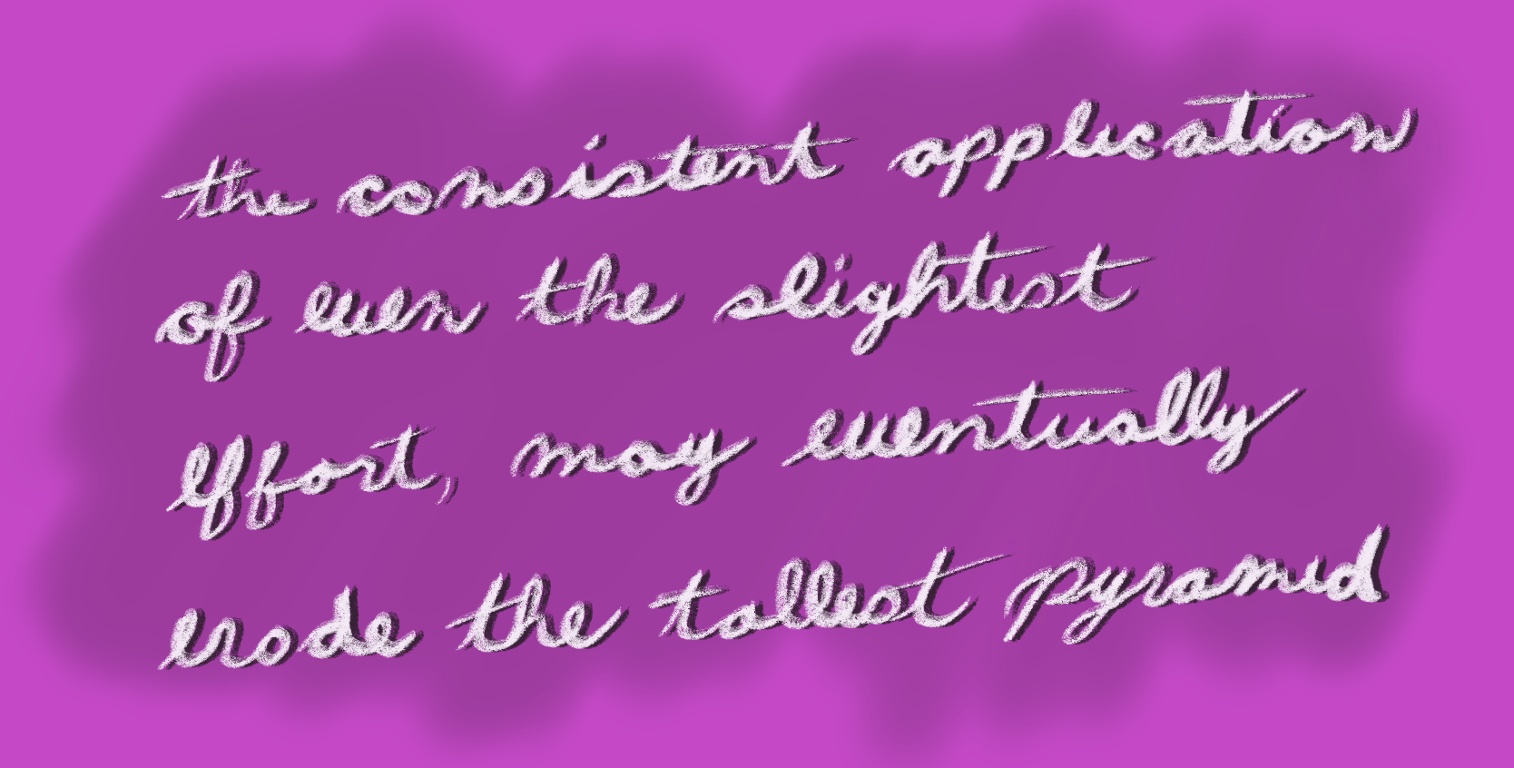 the consistent application
of even the slightest
effort, may eventually
erode the tallest pyramid